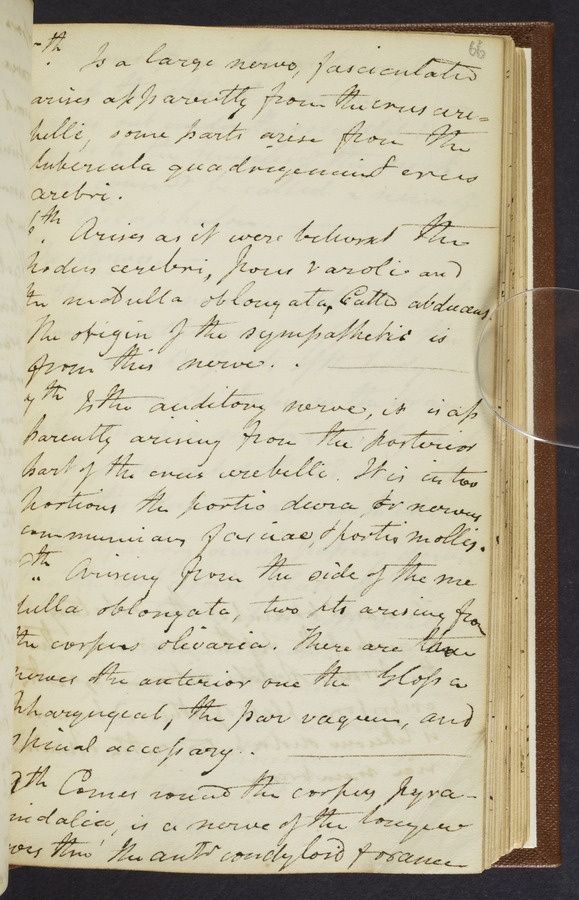 66
th. Is a large nerve, fasciculated
arises apparently from the crus cere=
belli, some parts arise from the
tubercula quadrigemina & crus
cerebri.
6th. Arises as it were betwext the
nodus cerebri, pons varolii and
the medulla oblongata, Called abducens.
The origin of the sympathetic is
from this nerve. .
7th Is the auditory nerve, it is ap
parently arising from the posterior
part of the crus cerebelli. It is in two
portions the portio deura, or nervus
communicans faciae, & portio mollis.
8th Arising from the side of the me
dulla oblongata, two pts arising from
the corpus olivaria. There are
nerves the anterior one the Glosso
pharyngeal, the par vagum, and
spinal accessary. .
9th Comes round the corpus pyra-
midalia, is a nerve of the tongue
thro' the antr condyloid foramen